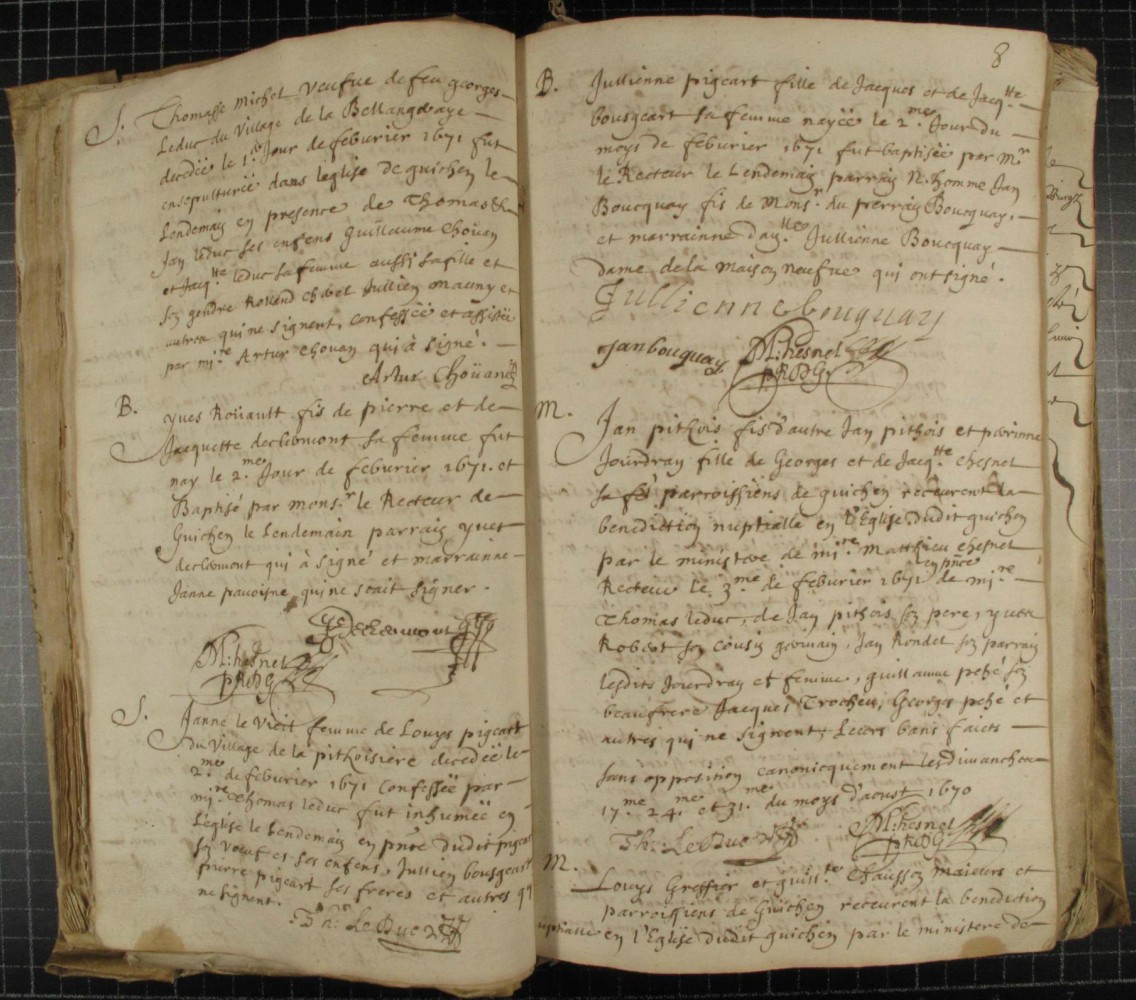 S. Thomasse Michel veufue de feu georges
Leduc du Village de la Bellangeraye
decedée le 1.er Jour de feburier 1671 fut
ensepulturée dans leglise de guichen le
Lendemain en presence de Thomas &
Jan leduc ses enfens guillaume Chouan
et Jacq.tte leduc sa femme aussi sa fille et
son gendre Rolland Julien mauny et
autres qui ne signent, confessée et assistée
par mi.re Artur Chouan qui à signé.
Artur Choüan
B. yves Roüault fis de pierre et de
Jacquette declermont sa femme fut
nay le 2.me Jour de feburier 1671. et
Baptisé par mons.r le Recteur de
Guichen le Lendemain parrain yves
declermont qui à signé et marrainne
Janne pauoisne qui ne scait signer.
Y. Declermont
M: chesnel
p R D G
S. Janne le Vieil femme de Louys pigeart
du Village de la pithoisiere decedée le
2.me de feburier 1671 confessée par
mi.re Thomas leduc fut inhumée en
L'eglise le Lendemain en pñce dudit pigeart
son veuf et ses enfens, Jullien bousgeart
pierre pigeart ses freres et autres qui
ne signent.
Th: Le Duc
8
B. Jullienne pigeart fille de Jacques et de Jacq.tte
bousgeart sa femme nayëe le 2.me Jour du
moys de feburier 1671 fut baptisée par M.r
le Recteur le Lendemain parrain N. homme Jan
Boucquay fis de Mons.r du perray Boucquay,
et marrainne da.lle Jullienne Boucquay
dame de la Maison neufue qui ont signé.
Jullienne bouquay
Jan bouquay
M: chesnel
p R D G
M. Jan pithois fis d'autre Jan pithois et perrinne
Jourdray fille de Georges et de Jacq.tte chesnel
sa fe parroissiens de guichen receurent la
benediction nuptialle en l'Eglise dudit guichen
par le ministere de mi.re Matthieu chesnel
Recteur le 3.me de feburier 1671 en pñce de mi.re
Thomas leduc, de Jan pithois son pere, yves
Robert son cousin germain, Jan Rondel son parrain
lesdits Jourdray et femme, guillaume pehé son
beaufrere Jacques Trocheu, Georges pehé et
autres qui ne signent, Leurs bans faicts
sans opposition canonicquement les dimanches
17.me 24.me et 31.me du moys d'aoust 1670
Th: Le Duc
M: chesnel
p R D G
M. Louys Greffier et guill.te Chausson maieurs et
parroissiens de Guichen receurent la benediction
nuptialle en l'Eglise dudit guichen par le ministere de